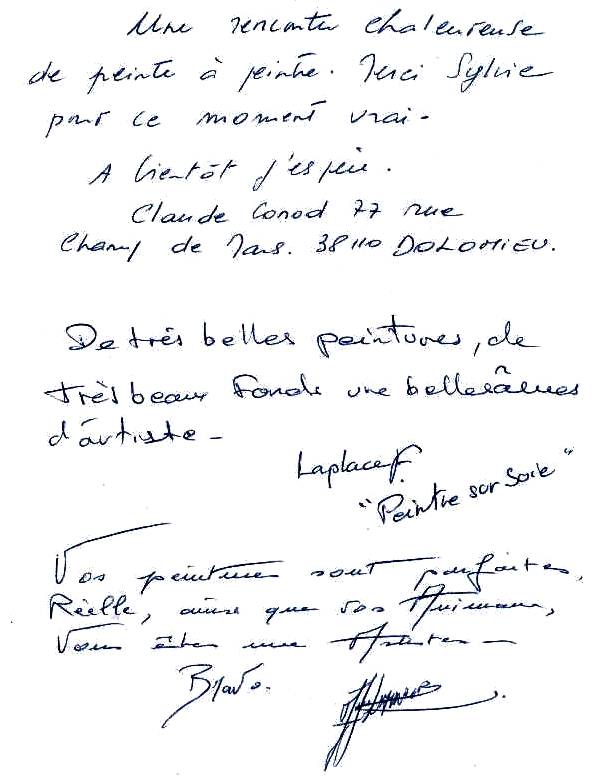 Une rencontre chaleureuse
de peintre à peintre. Merci Sylvie
pour ce moment vrai.
A bientôt j'espère.
Claude Conod 77 rue
Champ de Mars. 38110 DOLOMIEU.
De très belles peintures, de
très beaux fonds une belle âmes
d'artiste -
Laplace F.
"Peintre sur Soie"
Vos peintures sont parfaites,
Réelle, ainsi que vos Animaux,
Vous êtes une Artistes -
Bravo.